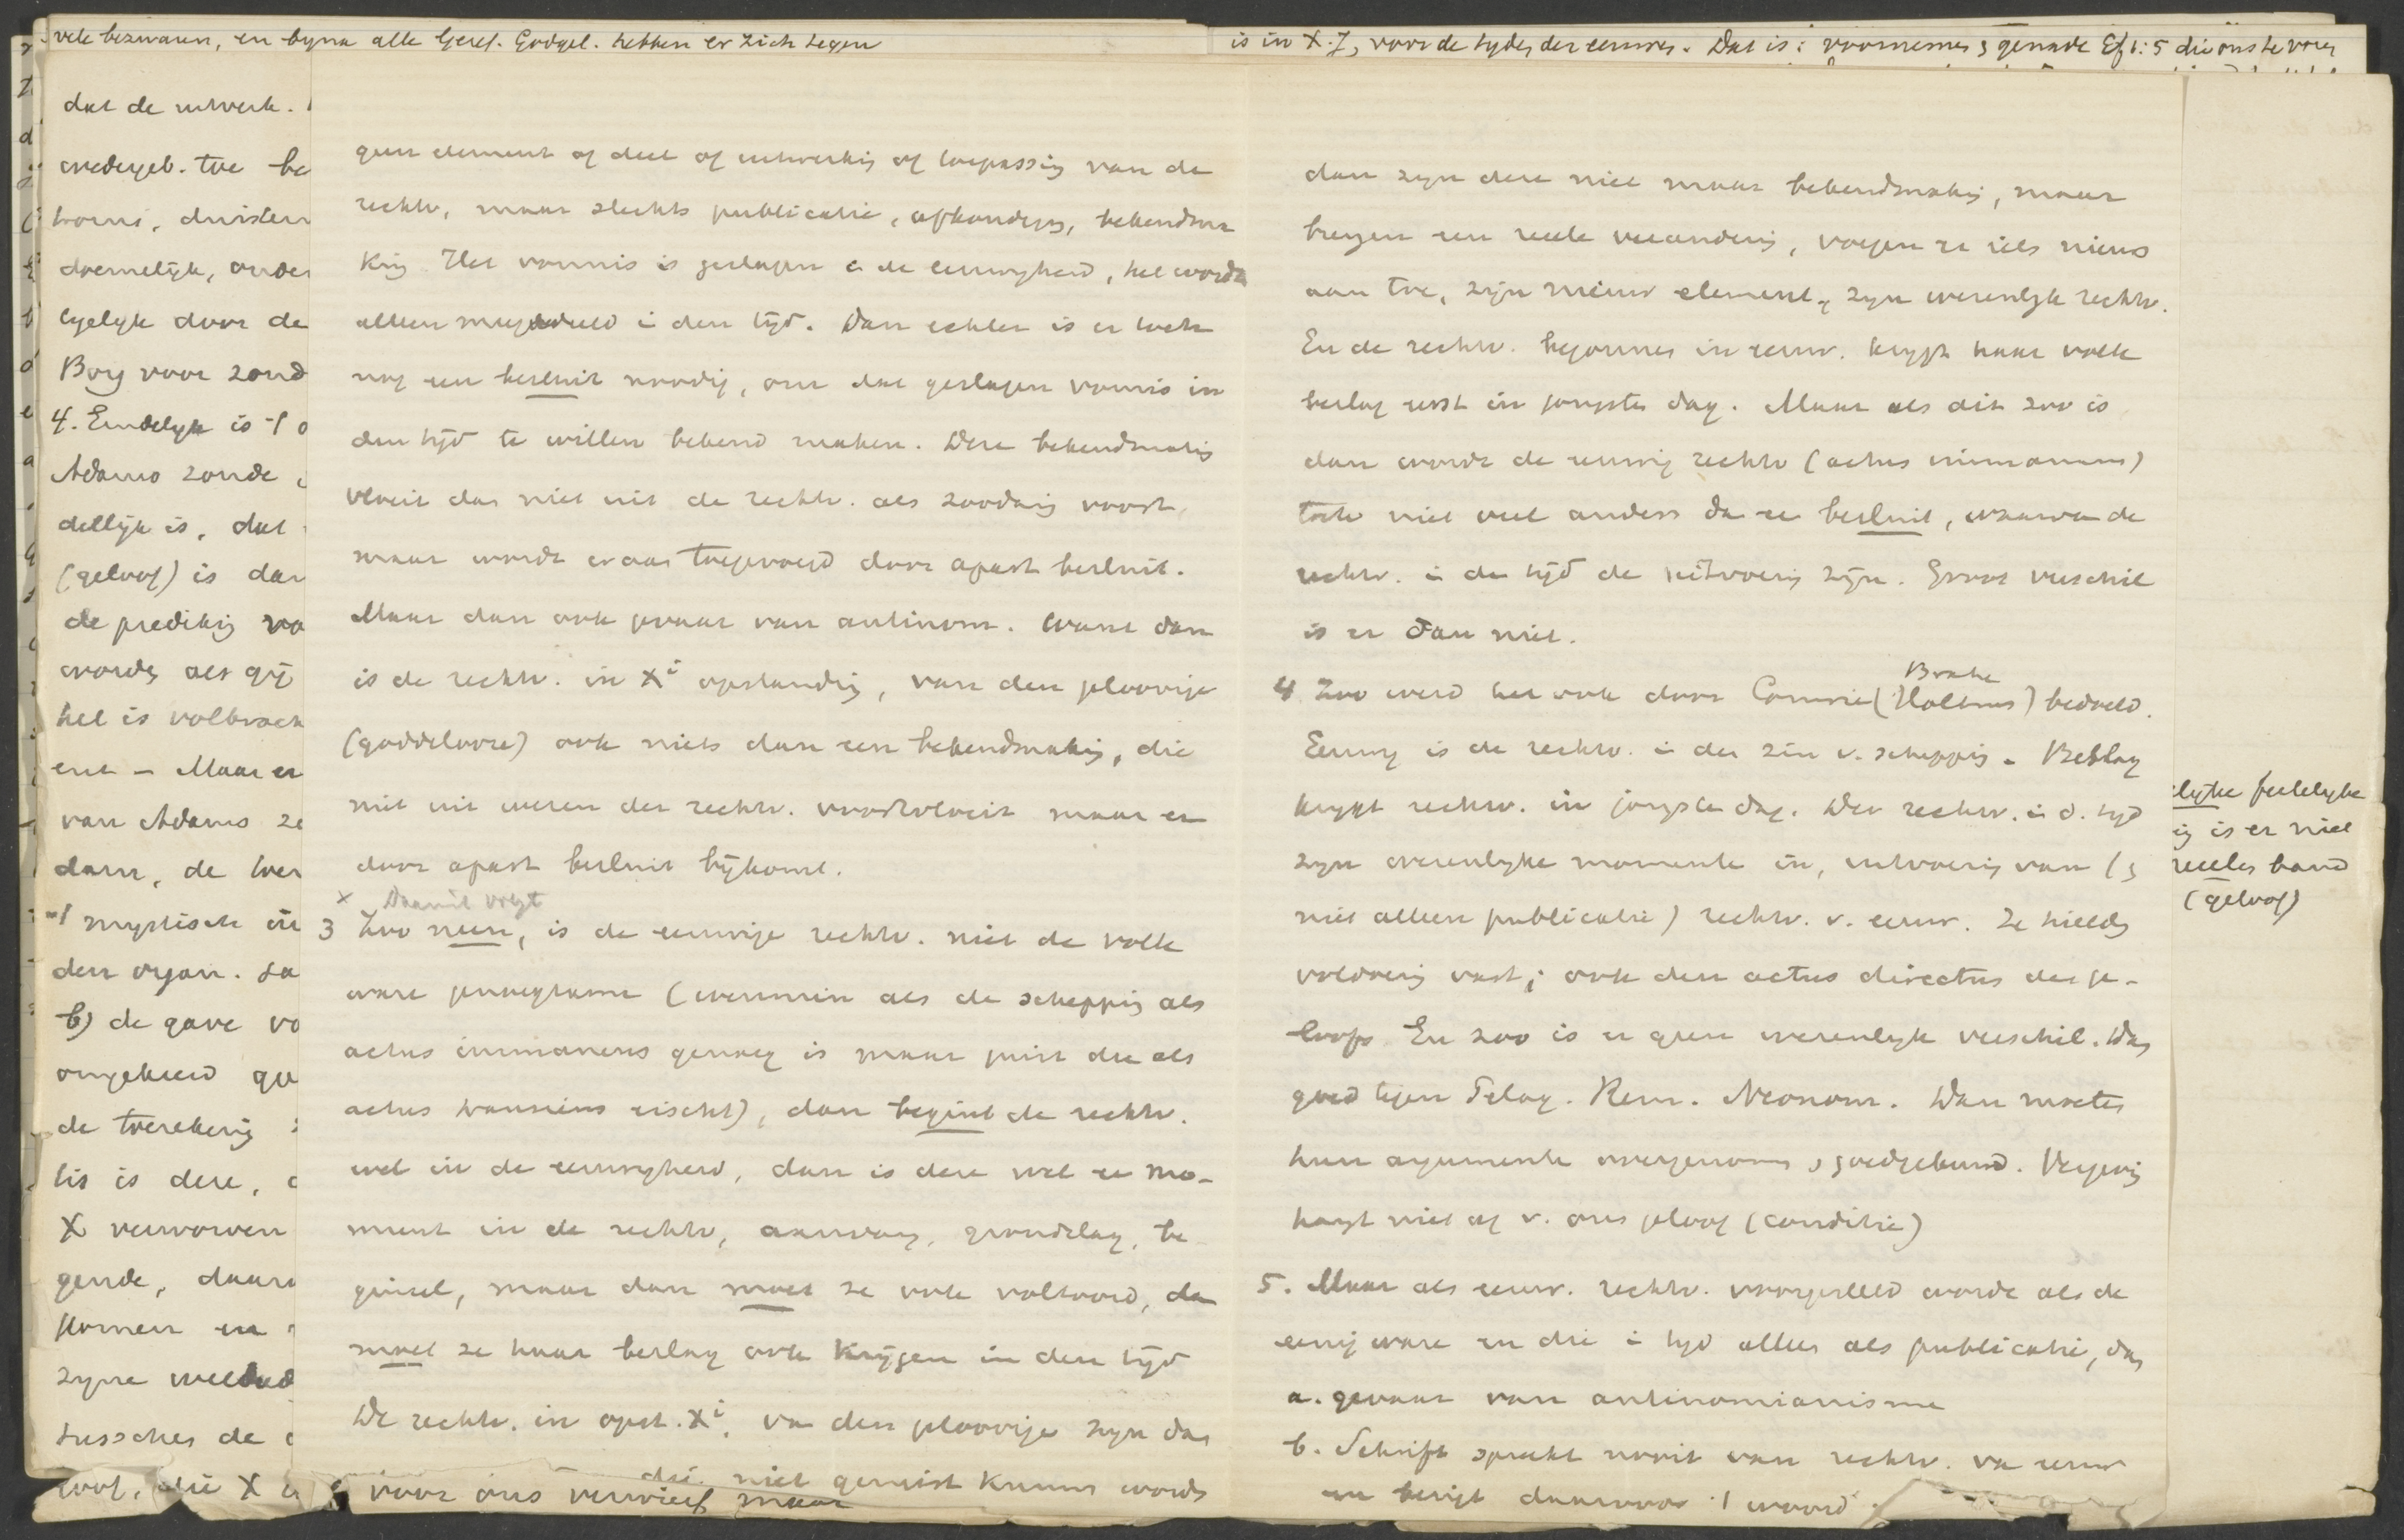 vele bezwaren, en byna alle Geref. Godgel. hebben er zich tegen
is in X. J, voor de tydes der eeuwes. Dat is: voornemes genade Ef 1:5 die ons te vores
dat de uitwerk.
wedergeb. toe be
horens, duister
doemelijk, onder
lyelyk door de
Borg voor zond
4. Eindelyk is
Adams zonde
dellijk is, dat
(geloof) is dan
de predikig vo
wordes als gij
het is volbrach
ent - Maar er
van Adams ze
dam, de twe
mystische
den organ.
b) de gave vo
omgekeerd
de toerekenig
tis is deze,
X verworven
gende, daar
komen en
zyne weldad
tussches de
loof, die X
geen element of deel of uitwerkig of toepassig van de
rechtv, maar slechts publicatie, afkondigig, bekendma
kig. Het vonnis is geslagen i de eeuwigheid, het wordt
alleen meegedeeld i den tijd. Dan echter is er toch
nog een besluit noodig, om dat geslagen vonnis in
den tijd te willen bekend maken. Deze bekendmakig
vloeit das niet uit de rechtv. als zoodanig voort,
maar wordt eraan toegevoegd door apart besluit.
Maar dan ook gevaar van antinom. Want dan
is de rechtv. in Xi opstandig, van den geloovige
(goddelooze) ook niets dan een bekendmakig, die
niet uit wezen der rechtv. voortvloeit maar er
door apart besluit bijkomt.
x Daaruit volgt
3 Zoo neen, is de eeuwige rechtv. niet de volle
ware genoegzame (evenmin als de scheppig als
actus immanens genoeg is maar juist die als
actus transiens eischt), dan begint de rechtv.
wel in de eeuwigheid, dan is deze wel ee mo-
ment in de rechtv, aanvang, grondslag, be
ginsel, maar dan moet ze ook voltooid, da
moet ze haar beslag ook krijgen in den tijd
De rechtv. in opst. Xi, va den geloovige zyn das
niet gemist kunnen words
voor ons verwierf maar
dan zyn deze niet maar bekendmakig, maar
brengen een reele veranderig, voegen er iets nieuws
aan toe, zijn nieuw element, zyn wezenlyk rechtv.
En de rechtv. begonnes in eeuw. krygt haar volle
beslag eerst in jongste dag. Maar als dit zoo is
dan wordt de eeuwig rechtv (actus immanens)
toch niet veel anders da ee besluit, waarva de
rechtv. i de tijd de uitvoerig zijn. Groot verschil
is er dan niet.
Brahe
4 Zoo werd het ook door Comrie (Holtius) bedoeld.
Eeuwig is de rechtv. i den zin v. scheppig. Beslag
krygt rechtv. in jongste dag. Der rechtv. i d. tyd
zyn wezenlyke momente in, uitvoerig van (
niet alleen publicatie) rechtv. v. eeuw. Ze hieldes
voldoenig vast; ook den actus directus des ge-
loofs. En zoo is er geen wezenlyk verschil. Was
goed tegen Pelag. Rem. Neonom. Dan moetes
hun argumente overgenomes goedgekeurd. Vergevig
hangt niet af v. ons geloof (conditie)
5. Maar als eeuw. rechtv. voorgesteld wordt als de
eenig ware en die i tyd alles als publicatie, das
a. gevaar van antinomianisme
b. Schrift spreekt nooit van rechtv. va eeuw
en bezigt daarvoor 1 woord.
lyke feitelyke
ig is er niet
reeeles band
(geloof)